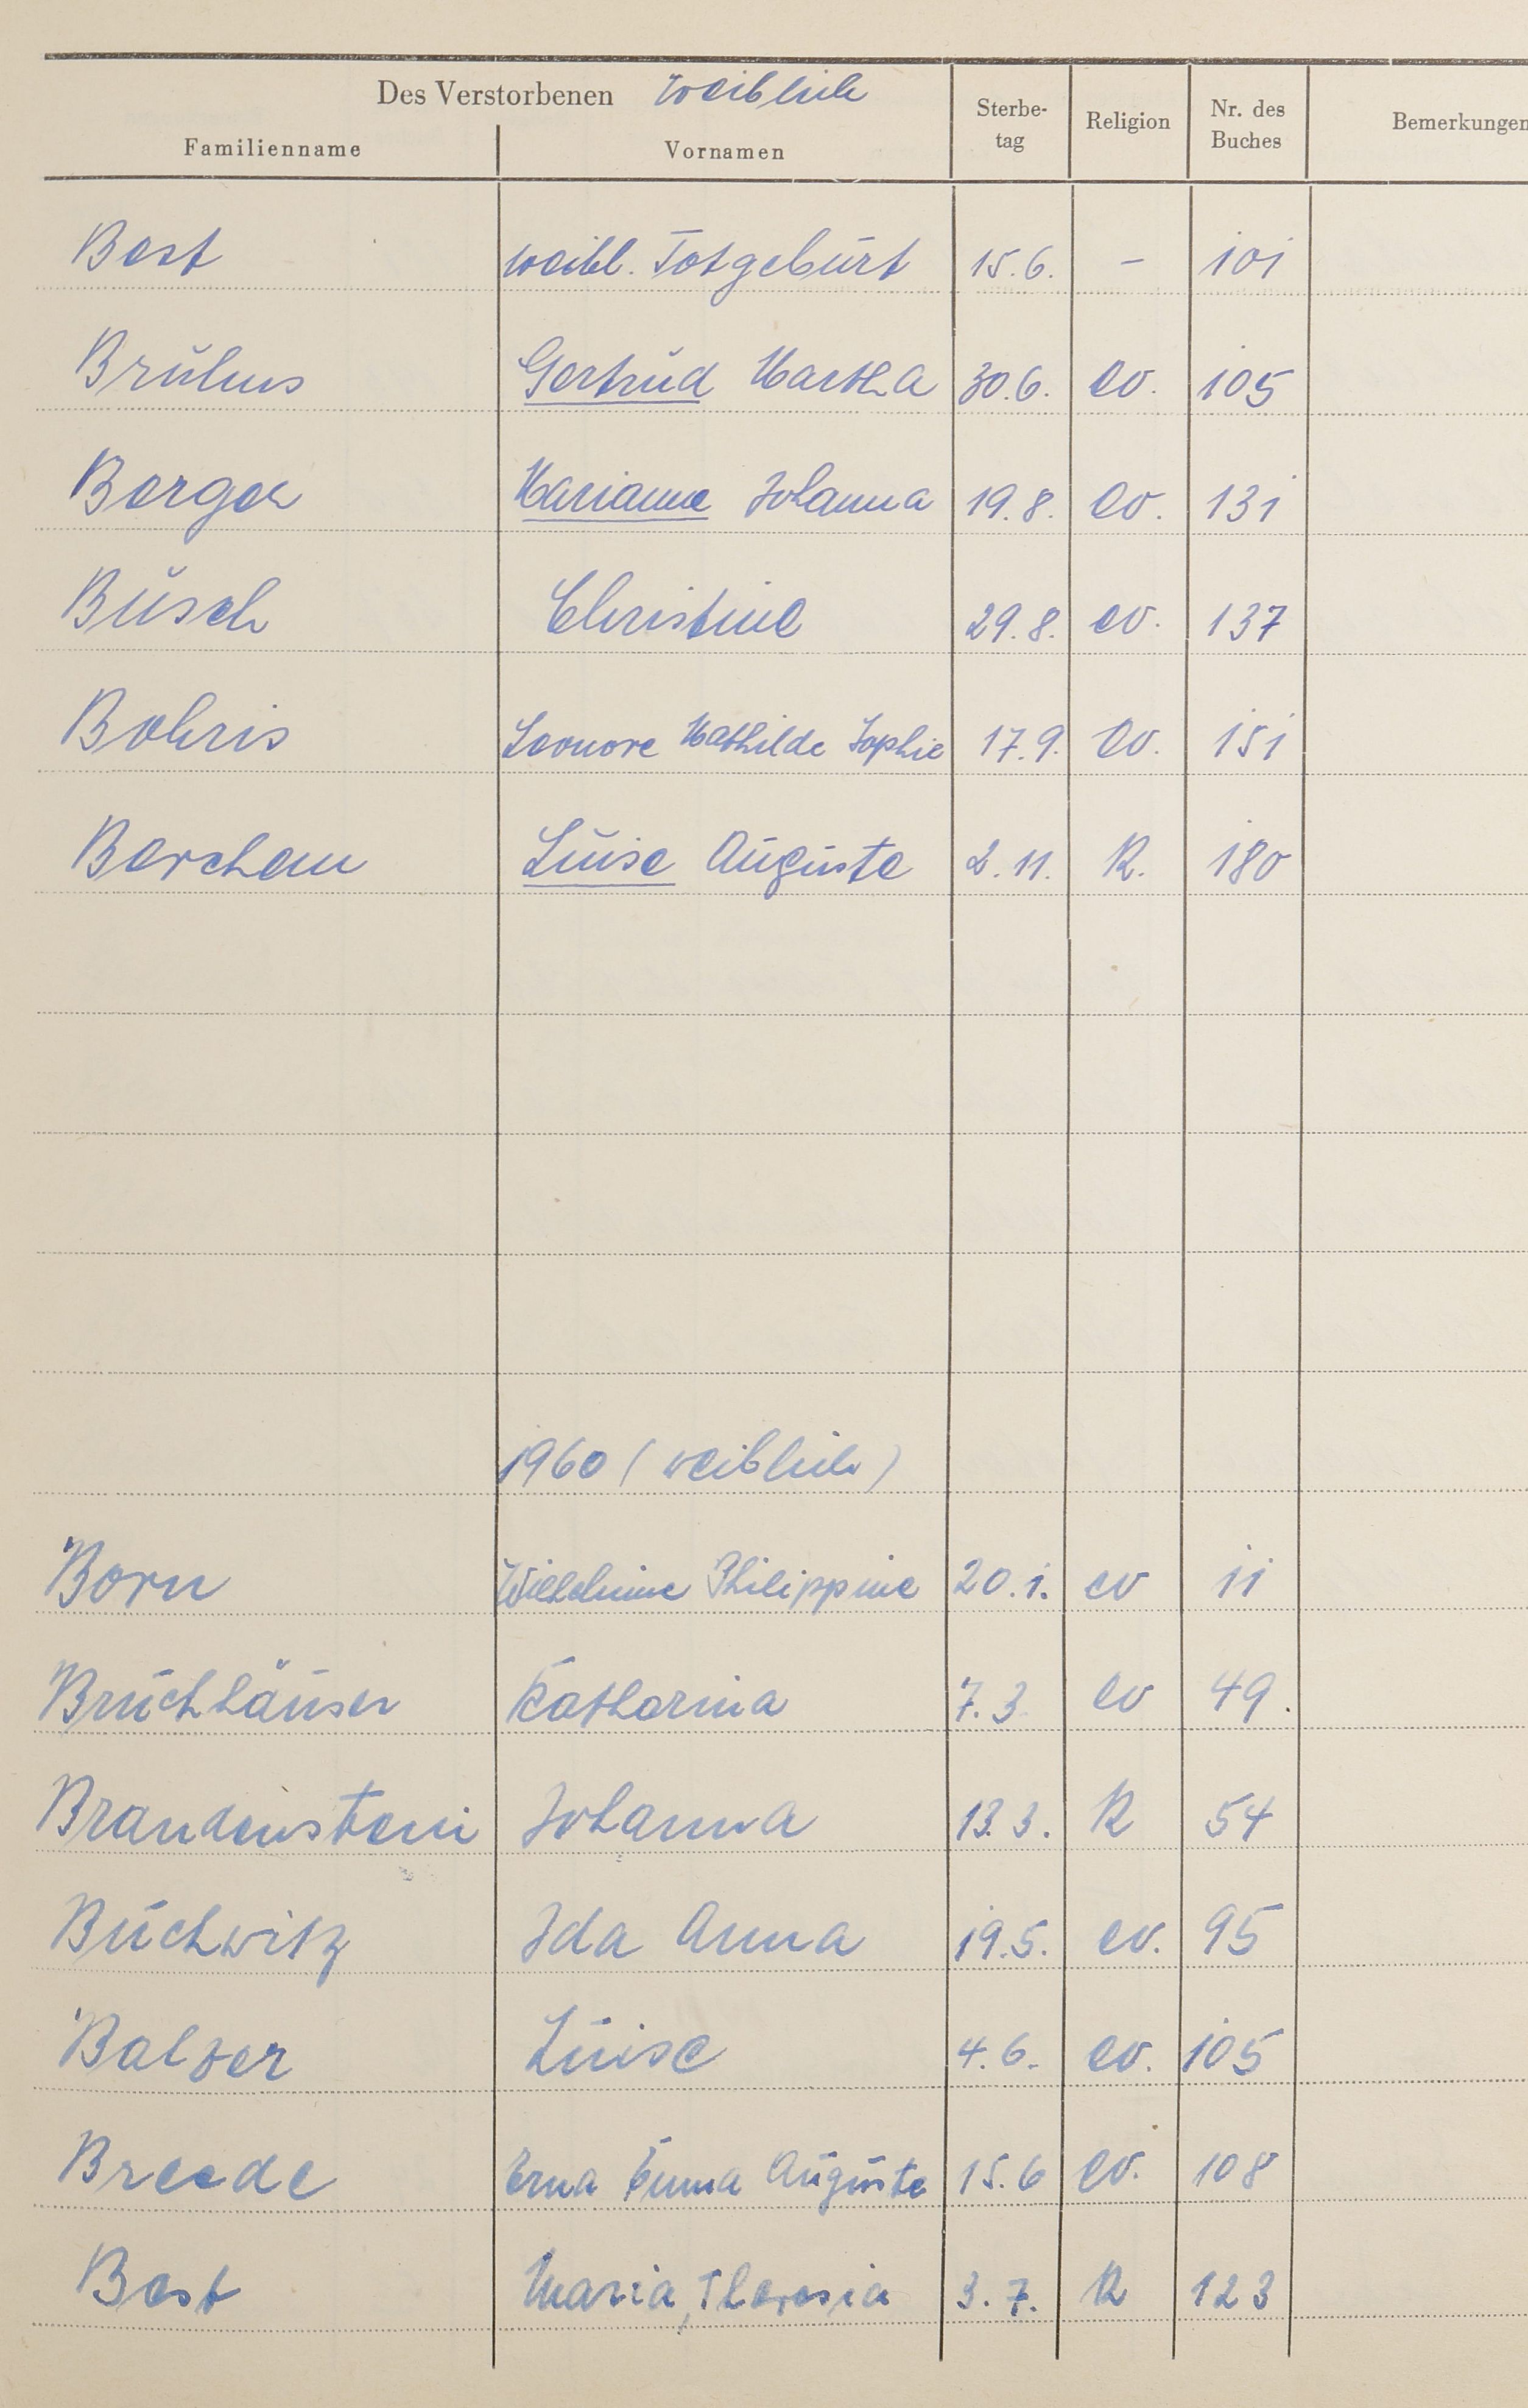 Des Verstorbenen weiblich
Familienname Vornamen Sterbe-tag Religion Nr. des Buches Bemerkungen
Best weibl. Totgeburt 15.6. – 101
Brühns Gertrud Martha 30.6. ev. 105
Berger Marianne Johanna 19.8. ev. 131
Busch Christine 29.8. ev. 137
Bohris Leonore Mathilde Sophie 17.9. ev. 151
Borchem Luise Auguste 2.11. K. 180
1960 (weiblich)
Born Wilhelmine Philippine 20.1. ev 11
Bruchhäuser Katharina 7.3 ev 49.
Brandenstein Johanna 13.3. K 54
Buchwitz Ida Anna 19.5. ev. 95
Balzer Luise 4.6. ev. 105
Breede Erna Emma Auguste 15.6 ev. 108
Best Maria, Theresia 3.7. K 123